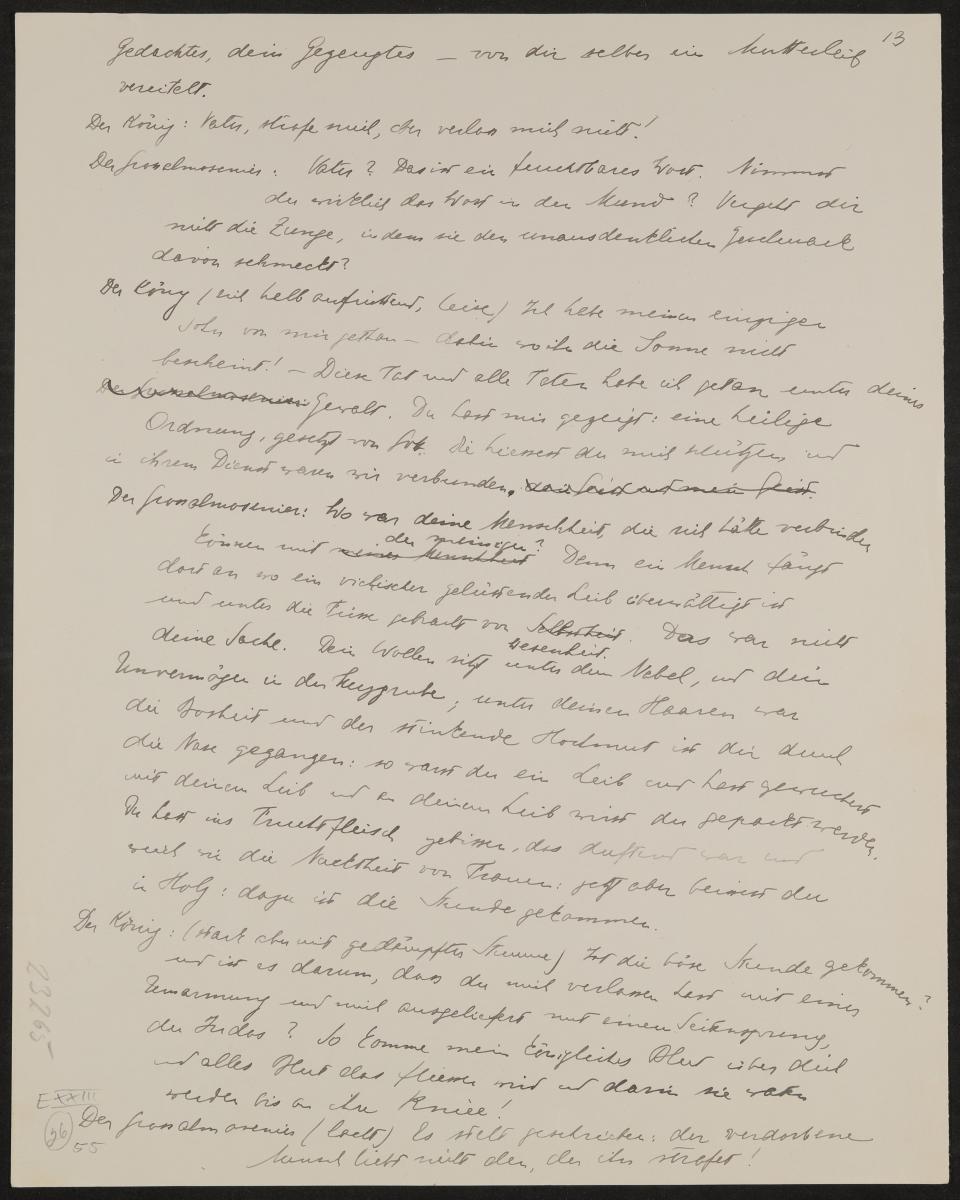 13
Gedachtes, dein Gezeugtes — von dir selber im Mutterleib
vereitelt.
Der König: Vater, strafe mich, aber verlass mich nicht!
Der Grossalmosenier: Vater? Das ist ein furchtbares Wort. Nimmst
du wirklich das Wort in den Mund? Vergeht dir
nicht die Zunge, indem sie den unausdenklichen Geschmack
davon schmeckt?
Der König (sich halb aufrichtend, leise) Ich habe meinen einzigen
Sohn von mir gethan — dahin wo ihn die Sonne nicht
bescheint! — Diese Tat und alle Taten habe ich getan unter deiner
Der Grossalmosenier Gewalt. Du hast mir gezeigt: eine heilige
Ordnung, gesetzt von Gott. Die hiessest du mich schützen, und
in ihrem Dienst waren wir verbunden, dein Geist und mein Geist.
Der Grossalmosenier: Wo war deine Menschheit, die sich hätte verbinden
der meinigen?
können mit meiner Menschheit Denn ein Mensch fängt
dort an wo ein viehischer gelüstender Leib überwältigt ist
und unter die Füsse gebracht von Selbstheit. Das war nicht
Wesenheit.
deine Sache. Dein Wollen sitzt unter dem Nabel, und dein
Unvermögen in der Herzgrube; unter deinen Haaren war
die Bosheit und der stinkende Hochmut ist dir durch
die Nase gegangen: so warst du ein Leib und hast gewuchert
mit deinem Leib und an deinem Leib wirst du gepackt werden.
Du hast ins Fruchtfleisch gebissen, das duftend war und
weich wie die Nacktheit von Frauen: jetzt aber beissest du
in Holz: dazu ist die Stunde gekommen.
Der König: (stark aber mit gedämpfter Stimme) Ist die böse Stunde gekommen?
und ist es darum, dass du mich verlassen hast mit einer
Umarmung und mich ausgeliefert mit einem Seitensprung,
du Judas? So komme mein königliches Blut über dich
und alles Blut das fliessen wird und darin sie waten
werden bis an ihre Kniee!
Der Grossalmosenier (lacht) Es steht geschrieben: der verdorbene
Mensch liebt nicht den, der ihn strafet!
23265
E XXIII
26
55